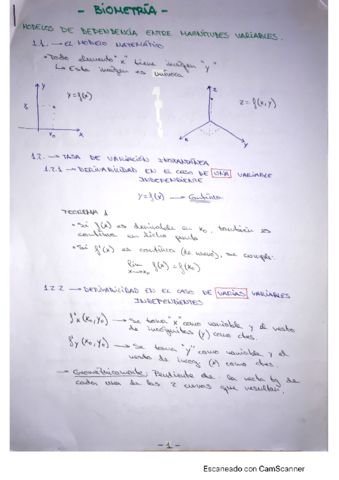 - BIOMETRÍA -
MODELOS DE DEPENDENCIA ENTRE MAGNITUDES VARIABLES.
1.1. → EL MODELO MATEMÁTICO
• Todo elemento "x" tiene imagen "y"
↳ Esta imagen es unívoca
y
y = f(x)
x₀
x
z
z = f(x,y)
x
y
1.2. → TASA DE VARIACIÓN INSTANTÁNEA
1.2.1 → DERIVABILIDAD EN EL CASO DE UNA VARIABLE
INDEPENDIENTE
y = f(x) → Continua
TEOREMA 1
• Si f(x) es derivable en x₀, también es
continua en dicho punto
• Si f(x) es continua, se cumple:
lim f(x) = f(x₀)
x→x₀
1.2.2 → DERIVABILIDAD EN EL CASO DE VARIAS VARIABLES
INDEPENDIENTES
f'x (x₀, y₀) → Se toma "x" como variable y el resto
de incógnitas (y) como ctes.
f'y (x₀, y₀) → Se toma "y" como variable y el
resto de incog (x) como ctes.
→ Geométricamente: Pendiente de la recta tg de
cada una de las 2 curvas que resultan.
- 1 -
Escaneado con CamScanner